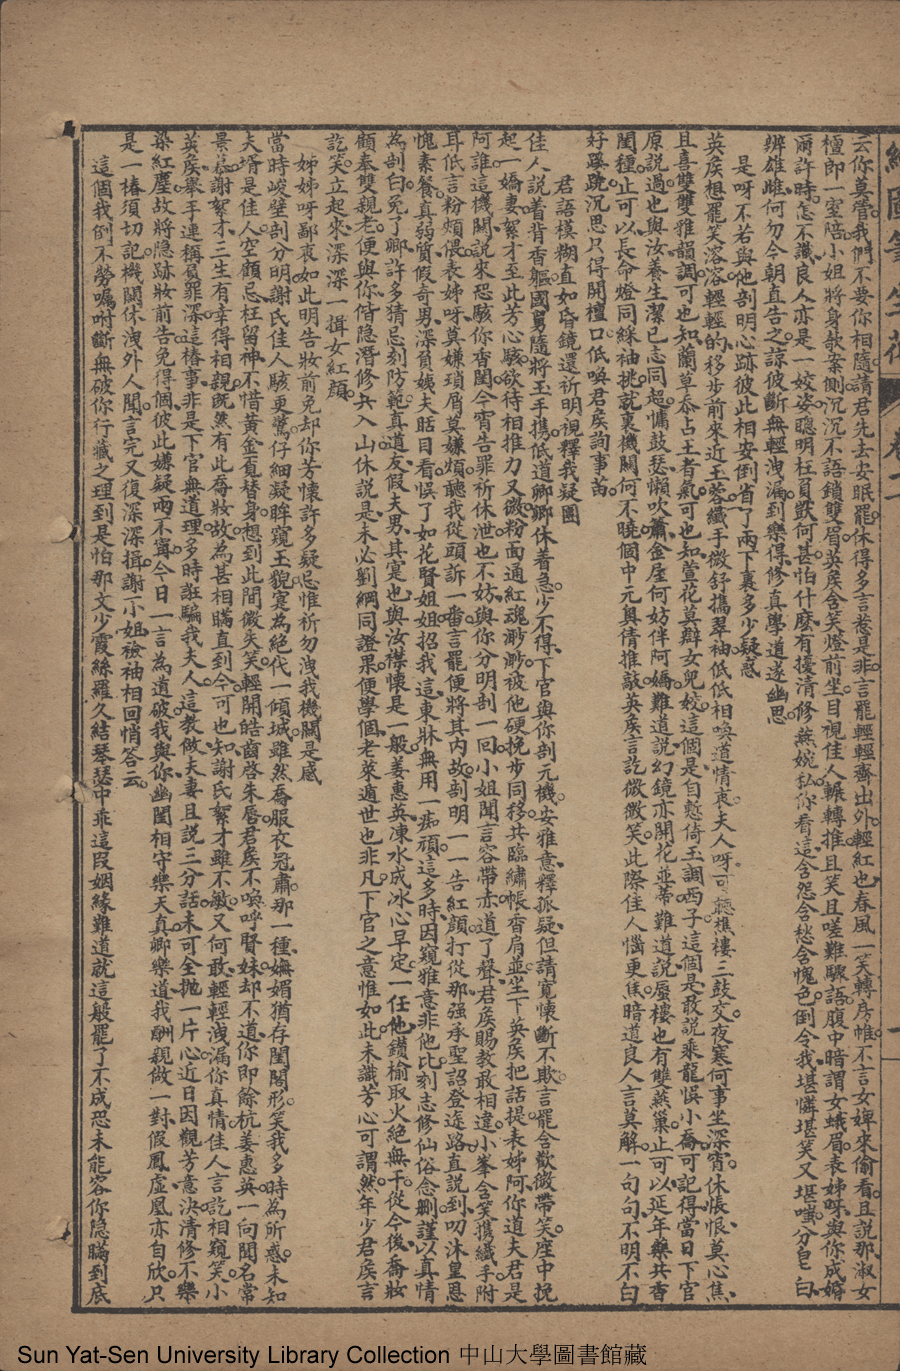 繪圖筆生花 卷十
云你莫管我們不要你相隨請君先去安眠罷休得多言惹是非言罷輕輕齊出外輕紅也春風一笑轉房帷不言女婢來偷看且說那淑女
檀郎一室陪小姐將身欹案側沉沉不語鎖雙眉英矦含笑燈前坐目視佳人輾轉推且笑且嗟難驟語腹中暗謂女蛾眉表姊呀與你成婚
爾許時怎不識良人亦是一姣姿聰明枉負猷何甚怕什麼有擾清修燕婉私你看這含怨含愁含愧色倒令我堪憐堪笑又堪嗤分皂白
辨雄雌何勿今朝直告之諒彼斷無輕洩漏到樂得修真學道遂幽思
是呀不若與他剖明心跡彼此相安倒省了兩下裏多少疑惑
英矦想罷笑溶溶輕輕的移步前來近玉蓉纖手微舒攜翠袖低低相喚道情衷夫人呀可聽樵樓三鼓交夜寒何事坐深宵休悵恨莫心焦
且喜雙雙雅韻調可也知蘭草忝占王者氣可也知萱花莫辯女兒姣這個是自慙倚玉調西子這個是敢說乘龍悞小喬可記得當日下官
原說過也與汝養生潔己志同超慵鼓瑟懶吹簫金屋何妨伴阿嬌難道說幻鏡亦開花並蒂難道說蜃樓也有雙燕巢止可以延年藥共香
閨種止可以長命燈同綵袖挑就裏機關何不曉個中元奥倩推敲英矦言訖微微笑此際佳人惱更焦暗道良人言莫解一句句不明不白
好蹊蹺沉思只得開檀口低喚君矦詢事苗
君語模糊直如昏鏡還祈明視釋我疑團
佳人說着背香軀國舅隨將玉手攜低道卿卿休着急少不得下官與你剖元機安雅意釋孤疑但請寬懷斷不欺言罷含歡微帶笑座中挽
起一嬌妻絮才至此芳心駭欲待相推力又微粉面通紅魂渺渺被他硬挽步同移共臨繡帳香肩並坐下英矦把話提表姊阿你道夫君是
阿誰這機關說來恐駭你香閨今宵告罪祈休泄也不妨與你分明剖一回小姐聞言容帶赤道了聲君矦賜教敢相違小峯含笑攜纖手附
耳低言粉頰偎表姊呀莫嫌瑣屑莫嫌煩聽我從頭訴一番言罷便將其内故剖明一一告紅顏打從那强承聖詔登途路直說到叨沐皇恩
愧素餐真弱質假奇男深負姨夫眂目看悞了如花賢姐姐招我這東牀無用一痴頑這多時因窺雅意非他比刻志修仙俗念删謹以真情
為剖白免了卿許多猜忌刻防範真道友假夫男其寔也與汝襟懷是一般姜惠英凍水成冰心早定一任他鑽榆取火絕無干從今後喬妝
顧奉雙親老便與你偕隱潛修共入山休說是未必劉綱同證果便學個老萊遁世也非凡下官之意惟如此未識芳心可謂然年少君矦言
訖笑立起來深深一揖女紅顏
姊姊呀鄙衷如此明告妝前免却你芳懷許多疑忌惟祈勿洩我機關是感
當時峻壁剖分明謝氏佳人駭更驚仔細凝眸窺玉貌寔為絕代一傾城雖然喬服衣冠肅那一種嫵媚猶存閨閣形笑我多時為所惑未知
夫壻是佳人空顧忌枉留神不惜黃金覓替身想到此間微失笑輕開皓齒啓朱唇君矦不喚呼賢妹却不道你即餘杭姜惠英一向聞名常
景慕謝絮才三生有幸得相親既然有此喬妝故為甚相瞞直到今可也知謝氏絮才雖不敏又何敢輕輕洩漏你真情佳人言訖相窺笑小
英矦舉手連稱負罪深這樁事非是下官無道理多時誑騙我夫人這教做夫妻且說三分話未可全抛一片心近日因觀芳意決清修不舉
染紅塵故將隐跡妝前告免得個彼此嫌疑兩不寗今日一言為道破我與你幽閨相守樂天真卿樂道我酬親做一對假鳳虛凰亦自欣只
是一樁須切記機關休洩外人聞言完又復深深揖謝小姐裣袖相回悄答云
這個我倒不勞囑咐斷無破你行藏之理到是怕那文少霞絲羅久結琴瑟中乖這叚姻緣難道就這般罷了不成恐未能容你隐瞞到底
Sun Yat-Sen University Library Collection 中山大學圖書館藏